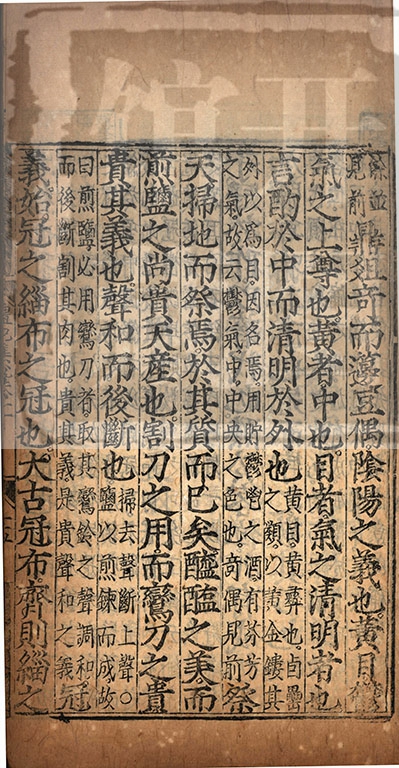 並
見前
鼎俎奇而籩豆偶陰陽之義也黃目鬱
氣之上尊也黃者中也目者氣之清明者也
言酌於中而清明於外也
黃目黃彝也卣罍
之類以黃金鏤其
外以為目因名焉用貯鬱鬯之酒有芬芳
之氣故云鬱氣中中央之色也奇偶見前
祭
天掃地而祭焉於其質而已矣醯醢之美而
煎鹽之尚貴天產也割刀之用而鸞刀之貴
貴其義也聲和而後斷也
掃去聲斷上聲○
鹽以煎鍊而成故
曰煎鹽必用鸞刀者取其鸞鈴之聲調和
而後斷割其肉也貴其義是貴聲和之義
冠
義始冠之緇布之冠也大古冠布齊則緇之